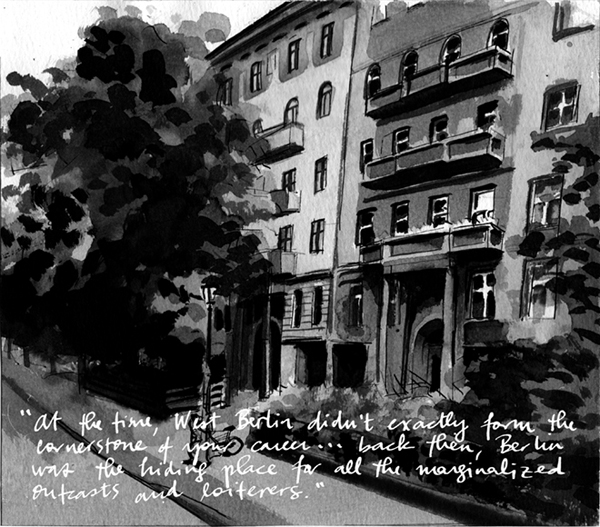 "At the time, West Berlin didn't exactly form the
cornerstone of your career... back then, Berlin
was the hiding place for all the marginalized
outcasts and loiterers."